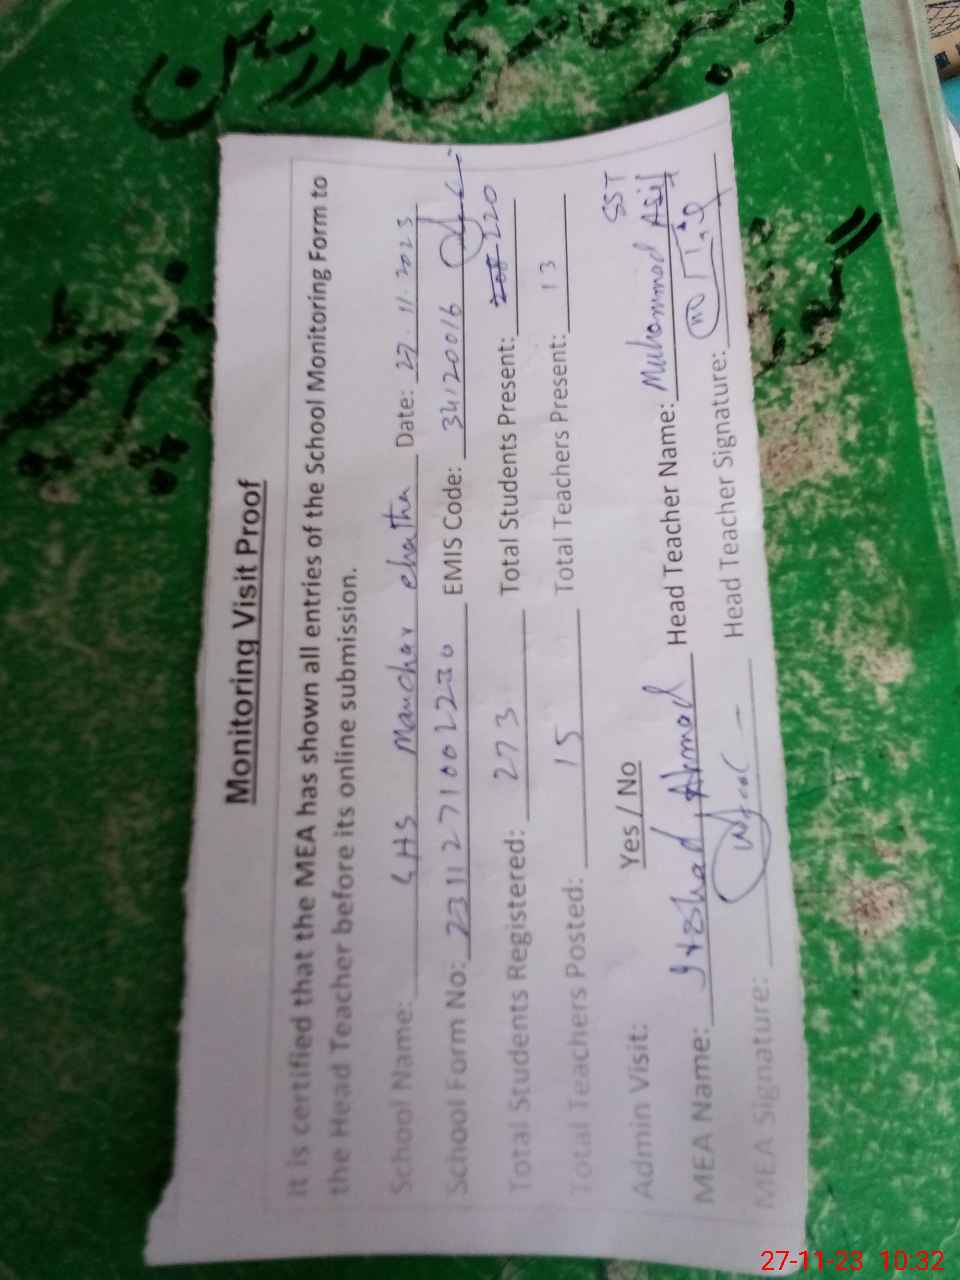 دفتر حاضری مدرسین
Monitoring Visit Proof
It is certified that the MEA has shown all entries of the School Monitoring Form to
the Head Teacher before its online submission.
School Name: GHS Manchar chatha Date: 27.11.2023
School Form No: 2311271002230 EMIS Code: 34120016
Total Students Registered: 273 Total Students Present: 208 220
Total Teachers Posted: 15 Total Teachers Present: 13
Admin Visit: Yes / No SST
MEA Name: Ahmad Head Teacher Name: Muhammad Asif
MEA Signature: Head Teacher Signature:
27-11-23 10:32